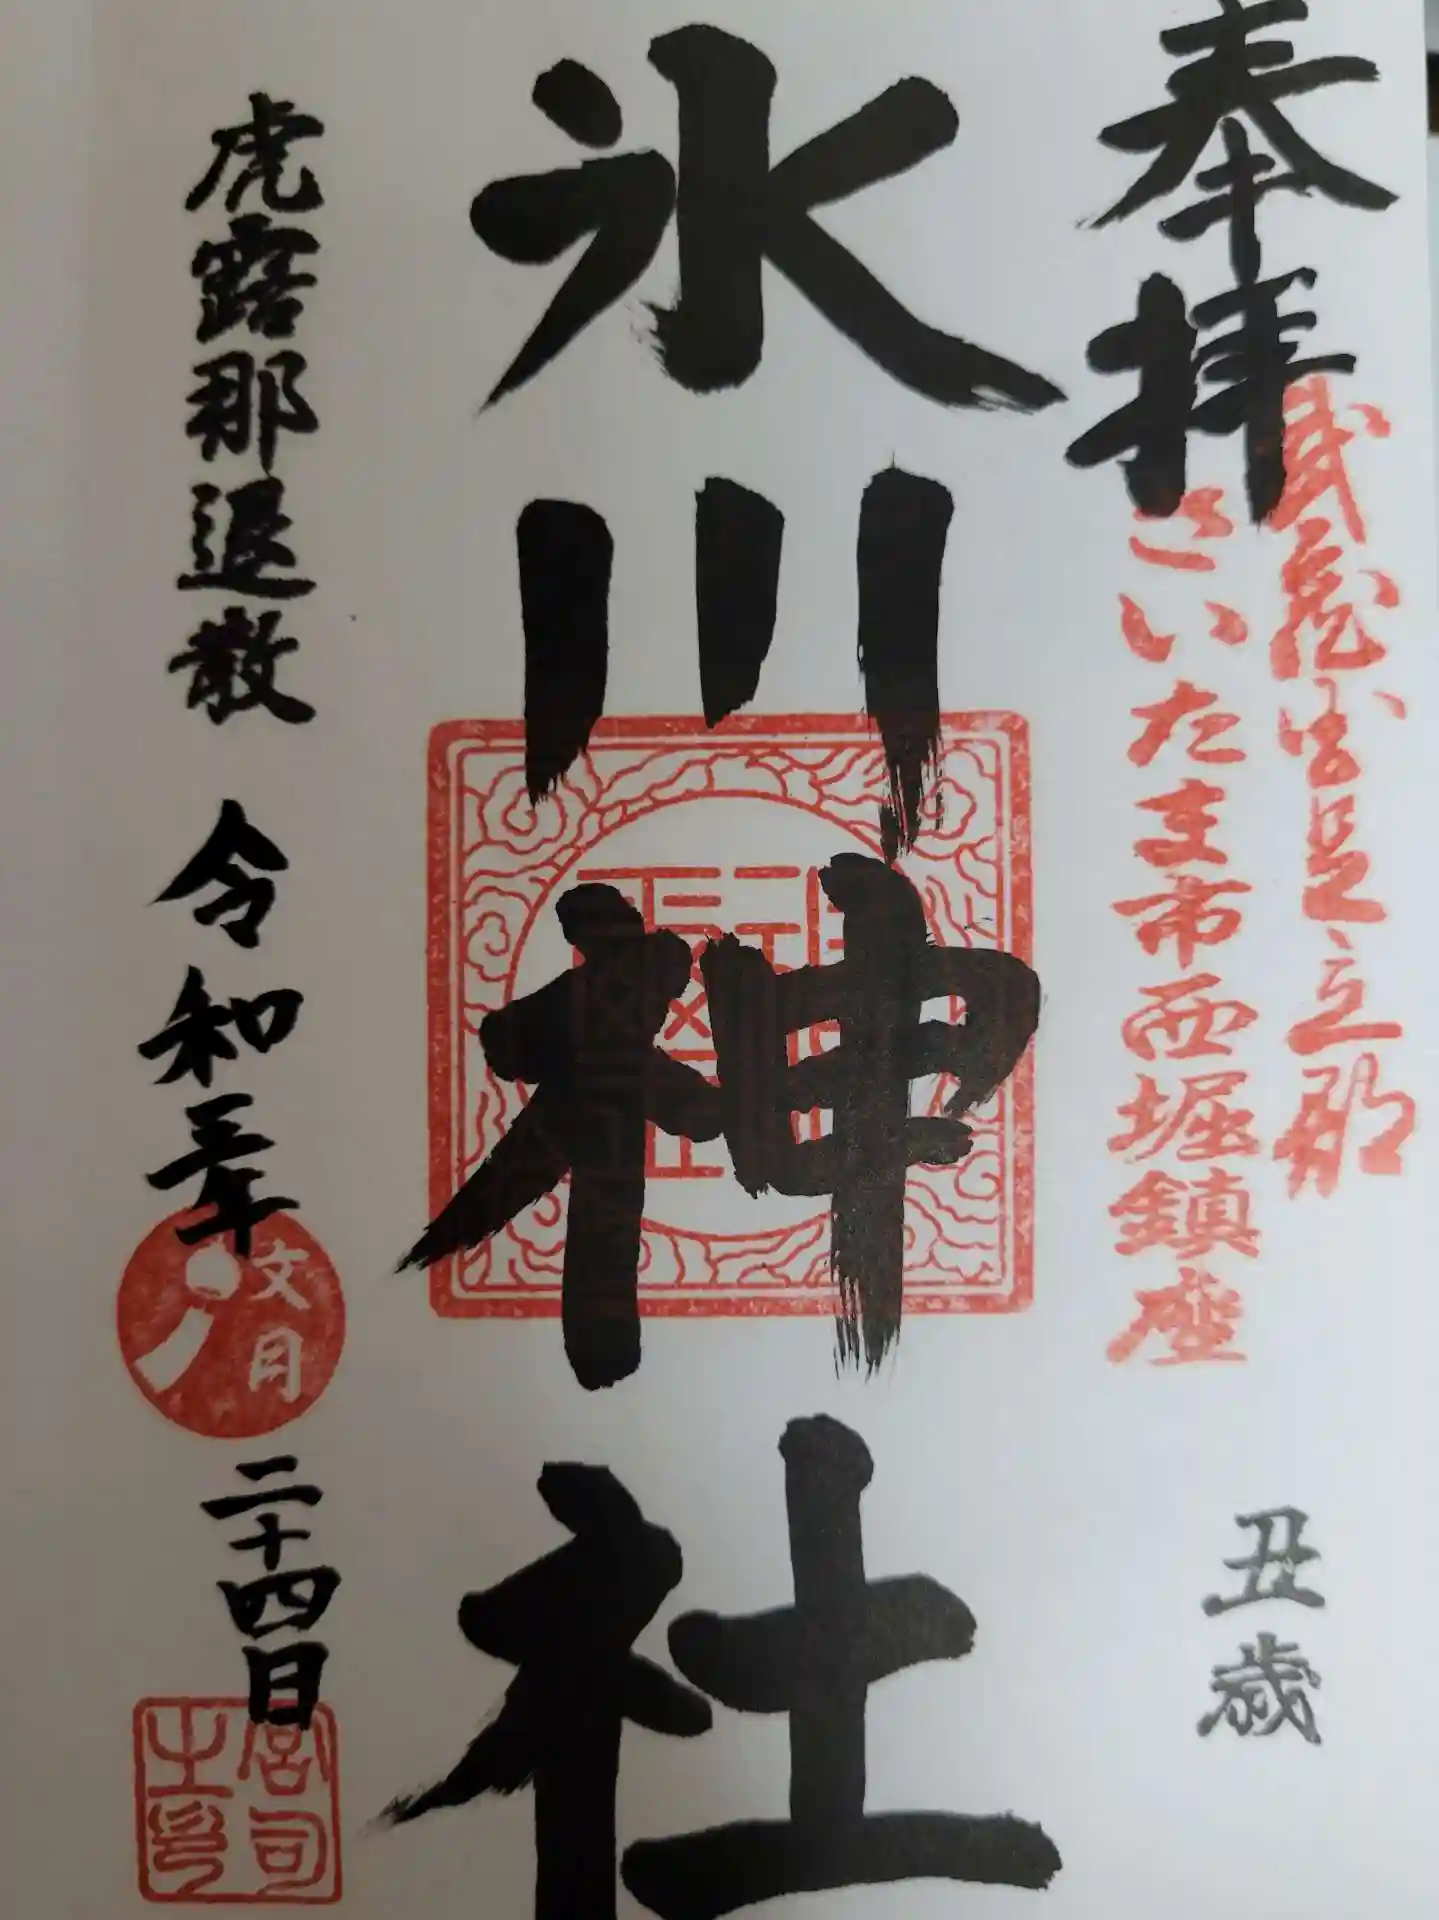 奉拝
武蔵国足立郡
さいたま市西堀鎮座
丑歳
氷川神社
虎露那退散
令和三年
文月
二十四日
宮司之印